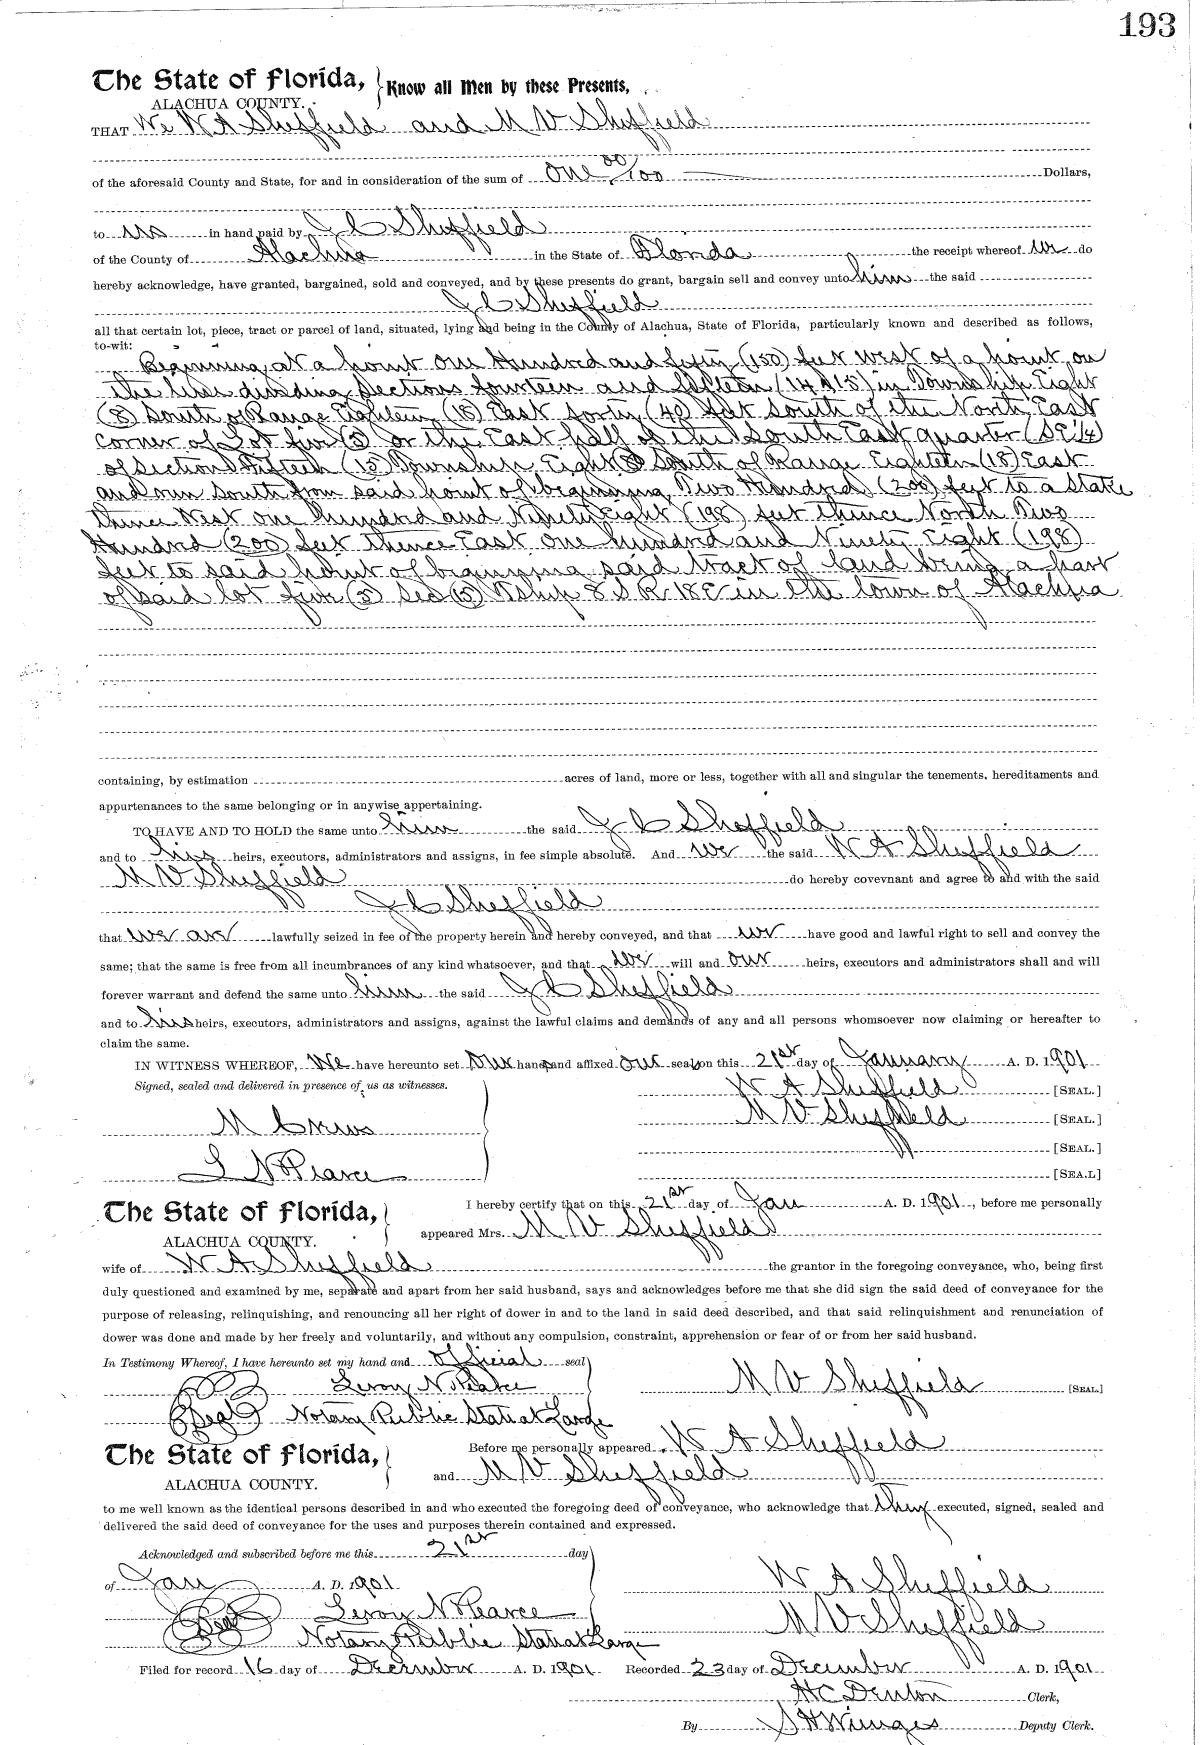 193
The State of Florida, } Know all Men by these Presents,
ALACHUA COUNTY.
THAT We W A Sheffield and M V Sheffield
of the aforesaid County and State, for and in consideration of the sum of One 00/100 Dollars,
to us in hand paid by J C Sheffield
of the County of Alachua in the State of Florida the receipt whereof we do
hereby acknowledge, have granted, bargained, sold and conveyed, and by these presents do grant, bargain sell and convey unto him the said
J C Sheffield
all that certain lot, piece, tract or parcel of land, situated, lying and being in the County of Alachua, State of Florida, particularly known and described as follows,
to-wit:
Beginning at a point one Hundred and fifty (150) feet west of a point on
the line dividing Sections fourteen and fifteen (14 & 15) in Township Eight
(8) South of Range Eighteen (18) East forty (40) feet south of the North East
corner of Lot five (5) or the East half of the South East quarter (SE 1/4)
of Section Fifteen (15) Township Eight (8) South of Range Eighteen (18) East
and run South from said point of beginning Two Hundred (200) feet to a Stake
thence West one hundred and Ninety Eight (198) feet thence North Two
Hundred (200) feet thence East one hundred and Ninety Eight (198)
feet to said point of beginning said tract of land being a part
of said lot five (5) Sec (15) Tship 8 S R 18 E in the town of Alachua
containing, by estimation acres of land, more or less, together with all and singular the tenements, hereditaments and
appurtenances to the same belonging or in anywise appertaining.
TO HAVE AND TO HOLD the same unto him the said J C Sheffield
and to his heirs, executors, administrators and assigns, in fee simple absolute. And we the said W A Sheffield
M V Sheffield do hereby covevnant and agree to and with the said
J C Sheffield
that we are lawfully seized in fee of the property herein and hereby conveyed, and that we have good and lawful right to sell and convey the
same; that the same is free from all incumbrances of any kind whatsoever, and that we will and our heirs, executors and administrators shall and will
forever warrant and defend the same unto him the said J C Sheffield
and to his heirs, executors, administrators and assigns, against the lawful claims and demands of any and all persons whomsoever now claiming or hereafter to
claim the same.
IN WITNESS WHEREOF, We have hereunto set our hands and affixed our seals on this 21st day of January A. D. 1901
Signed, sealed and delivered in presence of us as witnesses. W A Sheffield [SEAL.]
M V Sheffield [SEAL.]
M Crews
[SEAL.]
L N Pearce [SEA.L]
The State of Florida, } I hereby certify that on this 21st day of Jan A. D. 1901, before me personally
ALACHUA COUNTY. appeared Mrs. M V Sheffield
wife of W A Sheffield the grantor in the foregoing conveyance, who, being first
duly questioned and examined by me, separate and apart from her said husband, says and acknowledges before me that she did sign the said deed of conveyance for the
purpose of releasing, relinquishing, and renouncing all her right of dower in and to the land in said deed described, and that said relinquishment and renunciation of
dower was done and made by her freely and voluntarily, and without any compulsion, constraint, apprehension or fear of or from her said husband.
In Testimony Whereof, I have hereunto set my hand and official seal
Leroy N Pearce M V Sheffield [SEAL.]
Seal Notary Public State at Large
The State of Florida, } Before me personally appeared W A Sheffield
ALACHUA COUNTY. and M V Sheffield
to me well known as the identical persons described in and who executed the foregoing deed of conveyance, who acknowledge that they executed, signed, sealed and
delivered the said deed of conveyance for the uses and purposes therein contained and expressed.
Acknowledged and subscribed before me this 21st day
of Jan A. D. 1901 W A Sheffield
Seal Leroy N Pearce M V Sheffield
Notary Public State at Large
Filed for record 16 day of December A. D. 1901 Recorded 23 day of December A. D. 1901
H C Denton Clerk,
By S H Wienges Deputy Clerk.